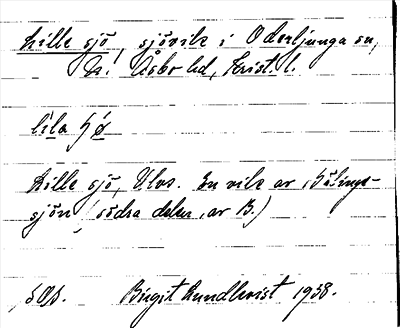 Lille sjö, sjövik i Oderljunga sn,
N. Åsbo hd, Krist. l.
lila sø
Lille sjö, Ulvs. En vik av Bälinge-
sjön (södra delen av B.)
Birgit Lundkvist 1938.